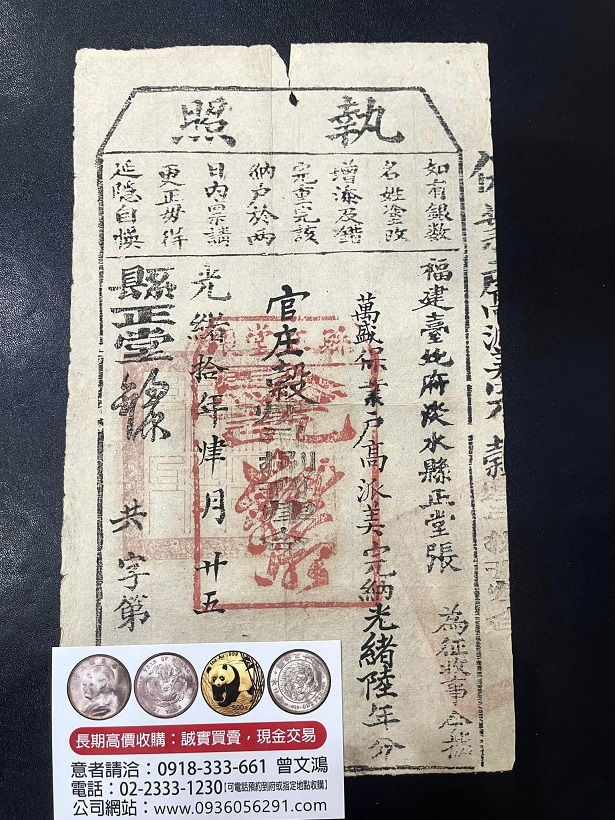 執照
如有銀數
名姓塗改
增添及錯
完重完該
納戶於兩
日內稟請
更正毋得
延隱自悞
福建臺北府淡水縣正堂張 為征收事今據
萬盛保業戶高派美完納光緒陸年分
官庄穀
光緒拾年肆月廿五
縣正堂 共字第
長期高價收購：誠實買賣，現金交易
意者請洽：0918-333-661 曾文鴻
電話：02-2333-1230【可電話預約到府或指定地點收購】
公司網站：www.0936056291.com